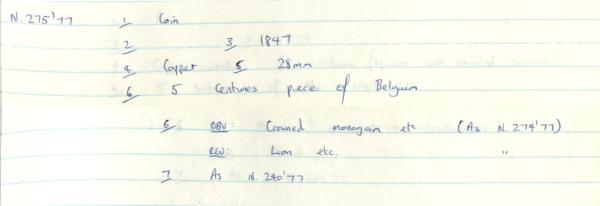 N. 275'77 1 Coin
2 3 1847
4 Copper 5 28mm
6 5 Centimes piece of Belgium
6 OBV: Crowned monogram etc (As N. 274'77)
REV: Lion etc. "
7 As N. 240'77